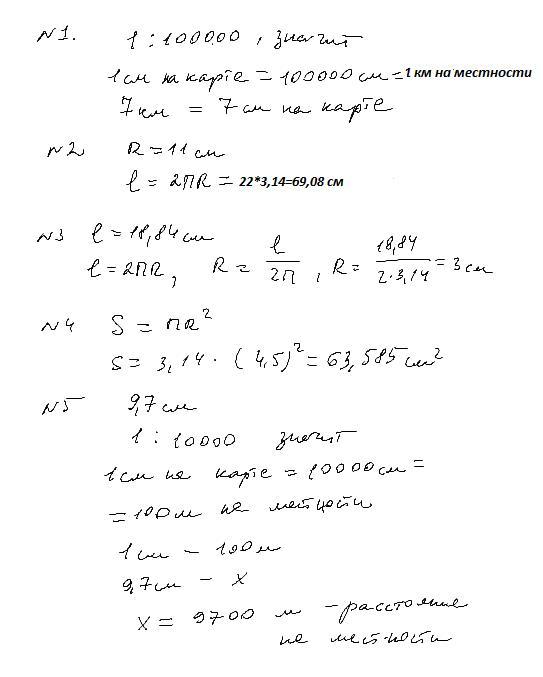 №1. 1 : 100000, значит
1 см на карте = 100000 см = 1 км на местности
7 км = 7 см на карте
№2 R = 11 см
l = 2ПR = 22*3,14=69,08 см
№3 l = 18,84 см
l = 2ПR, R = l/2П, R = 18,84/2·3,14 = 3 см
№4 S = ПR²
S = 3,14 · (4,5)² = 63,585 см²
№5 9,7 см
1 : 10000 значит
1 см на карте = 10000 см =
= 100 м на местности
1 см – 100 м
9,7 см – x
x = 9700 м – расстояние
на местности